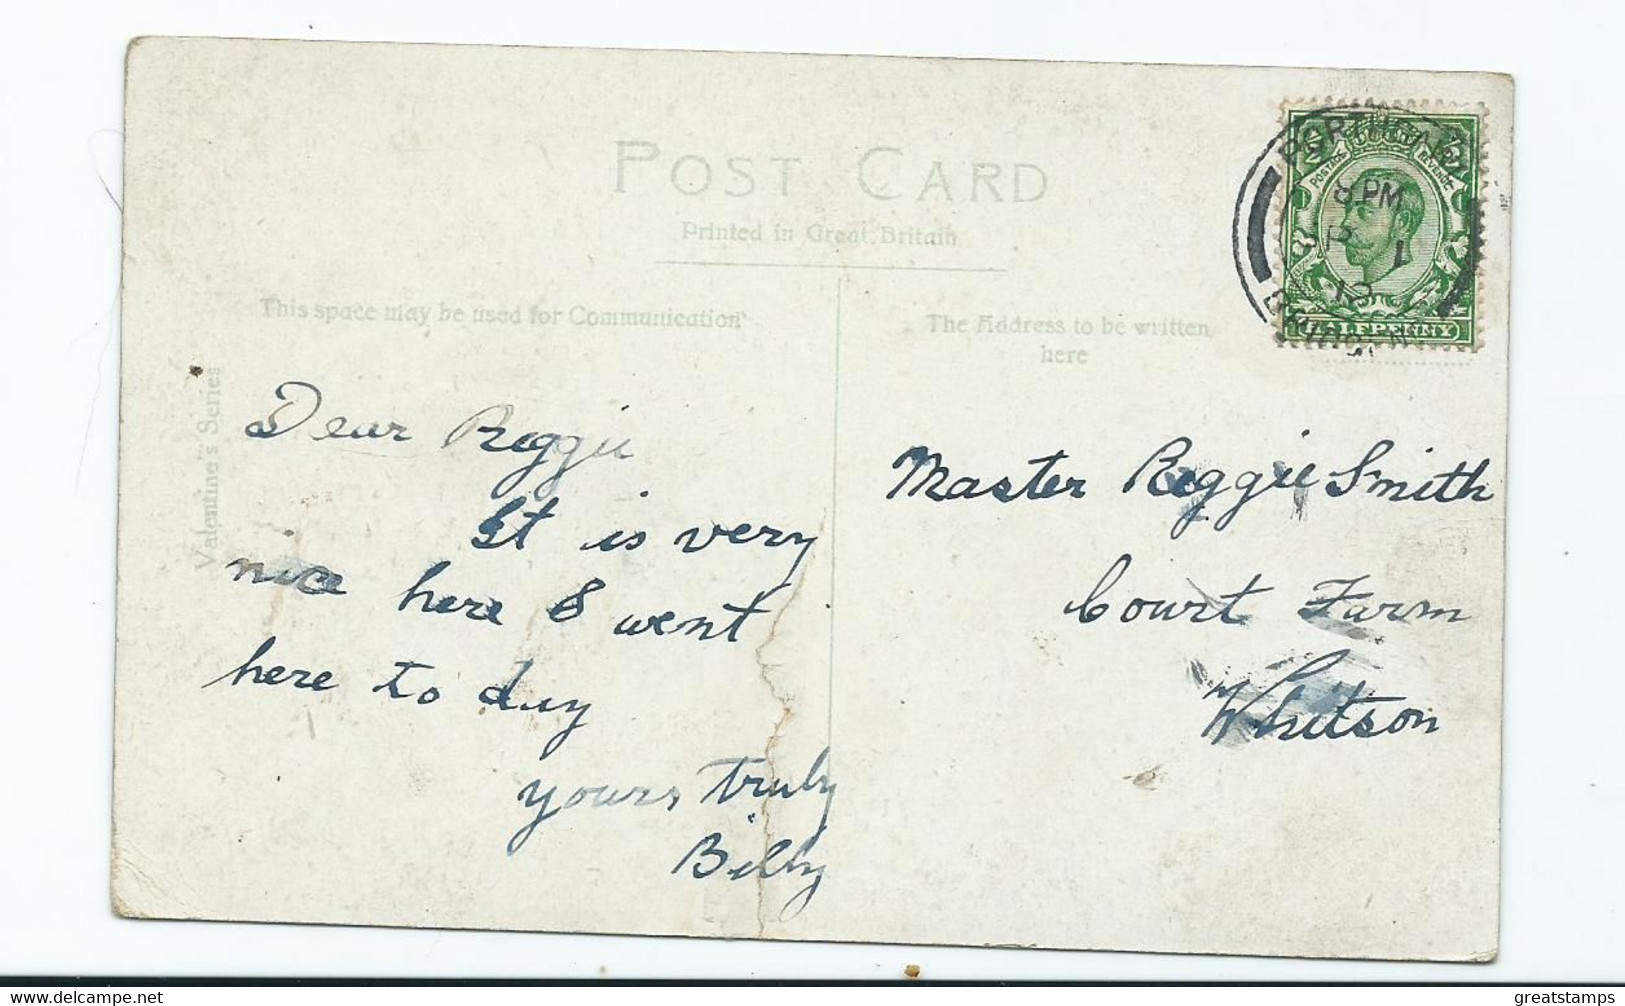 POST CARD
Printed in Great Britain
This space may be used for Communication
The Address to be written
here
Valentine's Series
Dear Reggie
It is very
nice here & went
here to day
yours truly
Billy
Master Reggie Smith
Court Farm
Whitson
PORTHCAWL
8 PM
1
12
BRIDGEND
POSTAGE
REVENUE
HALFPENNY
greatstamps